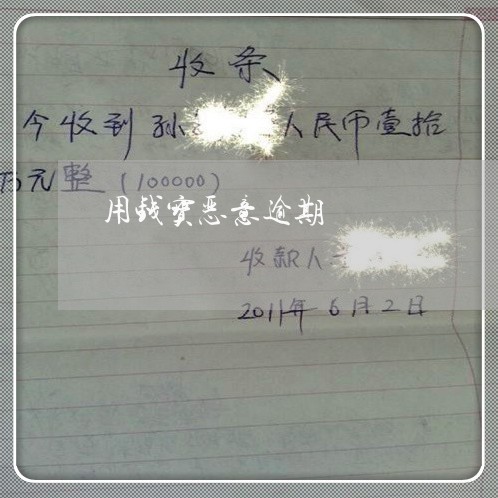 收条
今收到孙 人民币壹拾
万元整（100000）
用钱宝恶意逾期
收款人
2011年6月2日